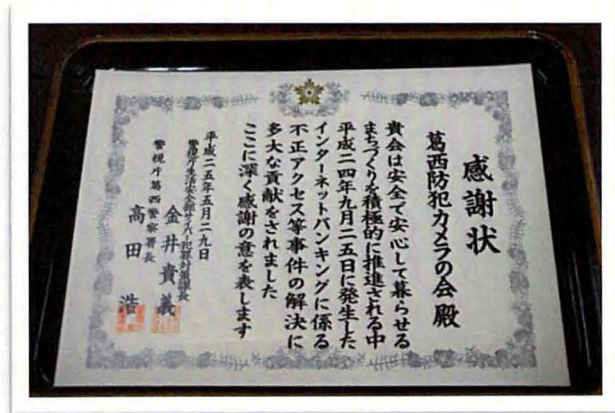 感謝状
葛西防犯カメラの会 殿
貴会は安全で安心して暮らせる
まちづくりを積極的に推進される中
平成二四年九月二五日に発生した
インターネットバンキングに係る
不正アクセス等事件の解決に
多大な貢献をされました
ここに深く感謝の意を表します
平成二五年五月二九日
警視庁生活安全部サイバー犯罪対策課長
金井貴義
警視庁葛西警察署長
高田 浩